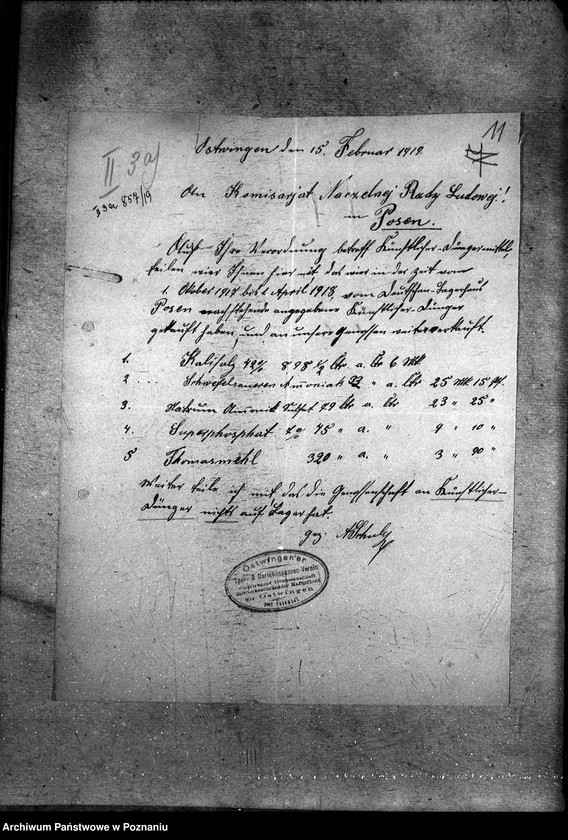 11
II 3a)
II 3a 857/19
Ostwingen den 15. Februar 1919.
An Komisarjat Naczelnej Rady Ludowej!
in
Posen.
Auf Ihre Verordnung betreff Künstlicher-Düngermittel,
teilen wier Ihnen hier mit das wier in der Zeit vom
1. Oktober 1917 bis 1 April 1918, vom Deutschen-Lagerhaus
Posen nachstehende angegebene Künstlicher-Dünger
gekauft haben, und an unsere Genossen weiterverkauft.
1. Kalisalz 42% 898 1/2 Ctr a. Ctr 6 Mk
2 . . . Schwefelsaueren Ammoniak " a. Ctr 25 Mk 15 Pf.
3. Natrum Amonik Sulfat 79 Ctr a. Ctr 23 " 25 "
4. Superphosphat 45 " a. " 9 " 10 "
5 Thomasmehl 320 " a. " 3 " 90 "
Weiter teile ich mit das die Genossenschaft an Künstlicher-
Dünger nichts auf Lager hat.
gez.
Ostwingen'er
Spar- & Darlehnskassen-Verein
Eingetragene Genossenschaft
mit unbeschränkter Haftpflicht
zu Ostwingen
Archiwum Państwowe w Poznaniu